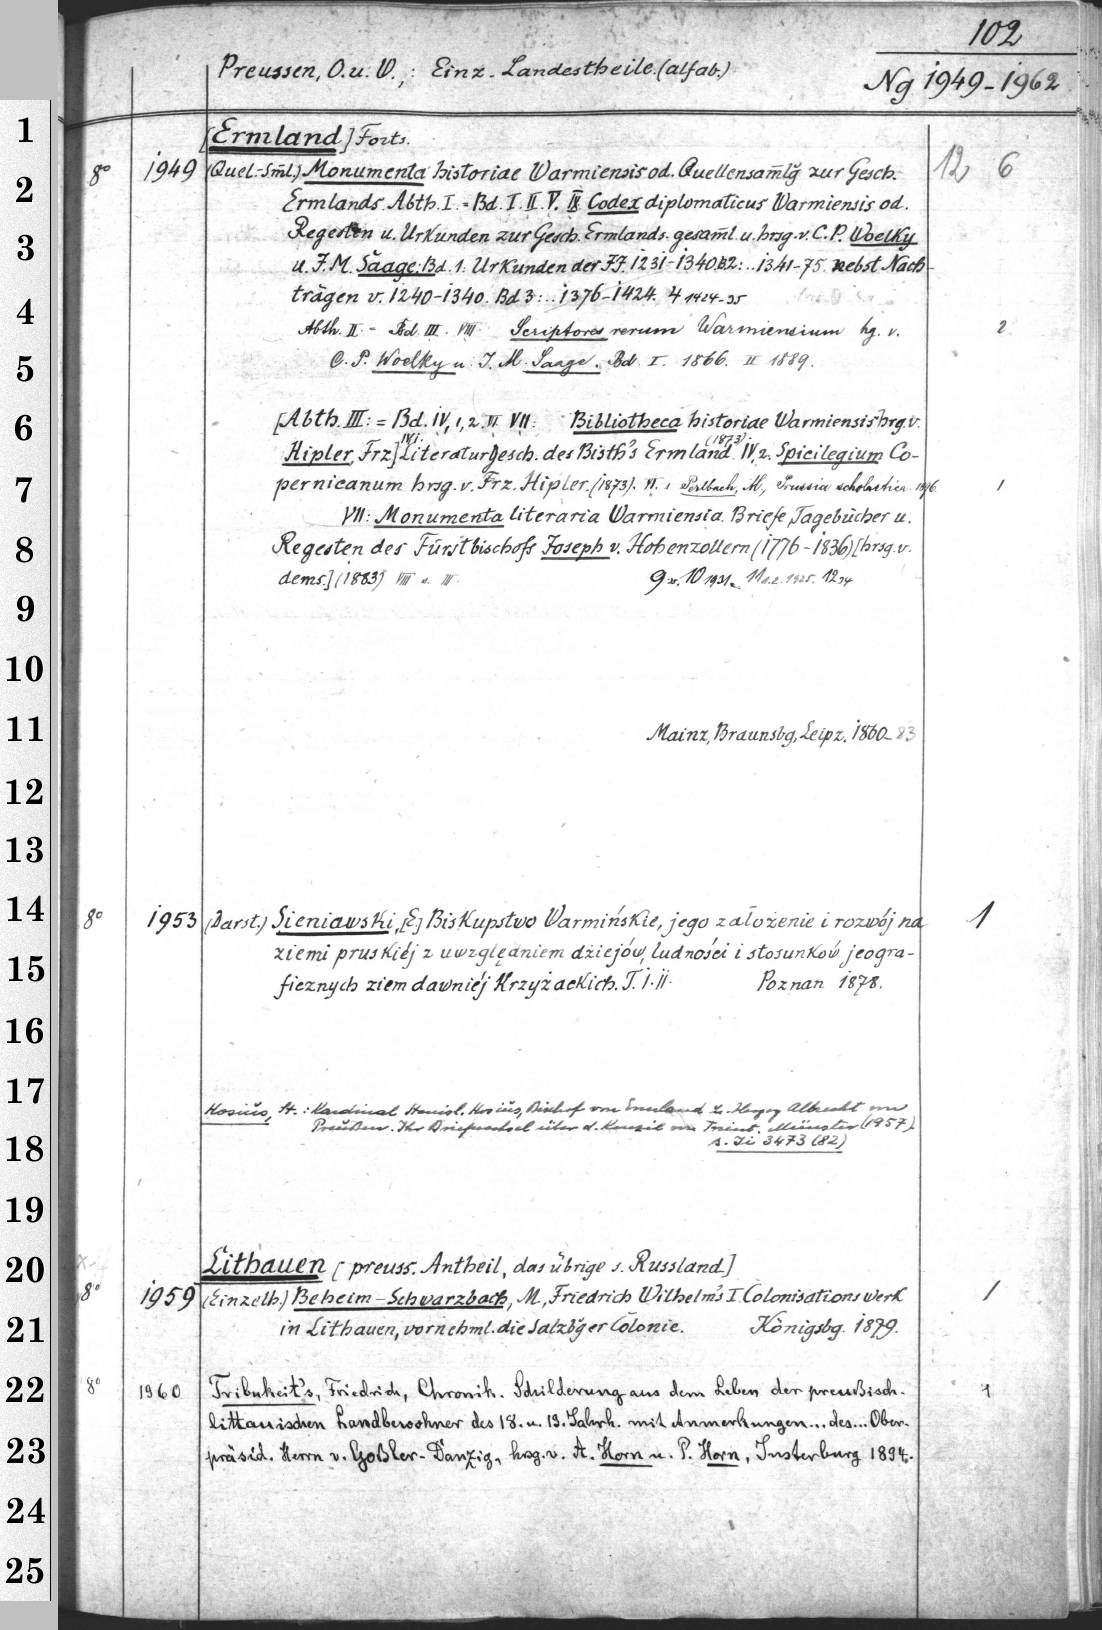 102
Preussen, O. u. W.,: Einz. Landestheile. (alfab.)
Ng 1949-1962
1
[Ermland] Forts.
8° 1949 (Quel.-Sml.) Monumenta historiae Warmiensis od. Quellensamlg zur Gesch. 12 6
2
Ermlands. Abth. I. = Bd. I. II. V. IX Codex diplomaticus Warmiensis od.
3
Regesten u. Urkunden zur Gesch. Ermlands. gesaml. u. hrsg. v. C. P. Woelky
u. J. M. Saage: Bd. 1. Urkunden der JJ. 1231-1340. B2:..1341-75. nebst Nach-
4
trägen v. 1240-1340. Bd 3:..1376-1424. 4 1424-35
Abth. II: = Bd III. VIII Scriptores rerum Warmiensium hg. v. 2
5
C. P. Woelky u. J. M. Saage. Bd. I. 1866. II 1889.
6
[Abth. III: = Bd. IV, 1, 2. VI VII: Bibliotheca historiae Warmiensis hrg. v.
Hipler, Frz.] IV,1. Literaturgesch. des Bisth's Ermland (1873) IV, 2. Spicilegium Co-
7
pernicanum hrsg. v. Frz. Hipler. (1873). VI. 1 Perlbach, M., Prussia scholastica. 1896. 1
VII: Monumenta literaria Warmiensia. Briefe, Tagebücher u.
8
Regesten des Fürstbischofs Joseph v. Hohenzollern (1776-1836) [hrsg. v.
dems.] (1883) VIII
9
10
11
Mainz, Braunsbg, Leipz. 1860-83
12
13
14
8° 1953 (Darst.) Sieniawski, [E.] Biskupstwo Warmińskie, jego założenie i rozwój na 1
15
ziemi pruskiéj z uwzględniem dziejów, ludności i stosunków jeogra-
ficznych ziem dawniéj Krzyżackich. T. I. II. Poznan 1878.
16
17
Hosius, St.: Kardinal Stanisl. Hosius, Bischof von Ermland u. Herzog Albrecht von
Preußen. Ihr Briefwechsel über d. Konzil von Trient. Münster (1957)
18
s. Ti 3473 (82)
19
20
Lithauen [preuss. Antheil, das übrige s. Russland]
8° 1959 (Einzelh.) Beheim-Schwarzbach, M., Friedrich Wilhelm's I. Colonisationswerk 1
21
in Lithauen, vornehml. die Salzbger Colonie. Königsbg. 1879.
22
8° 1960 Tribukeit's, Friedrich, Chronik. Schilderung aus dem Leben der preußisch- 1
littauischen Landbewohner des 18. u. 19. Jahrh. mit Anmerkungen... des... Ober-
23
präsid. Herrn v. Goßler-Danzig, hrsg. v. A. Horn u. P. Horn, Insterburg 1894.
24
25